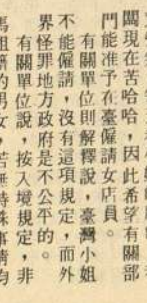 闆現在苦哈哈，因此希望有關部
門能准予在臺僱請女店員。
有關單位則解釋說，臺灣小姐
不能僱請，沒有這項規定，而外
界怪罪地方政府是不公平的。
有關單位說，按入境規定，非
馬祖籍的男女，若無特殊事情均